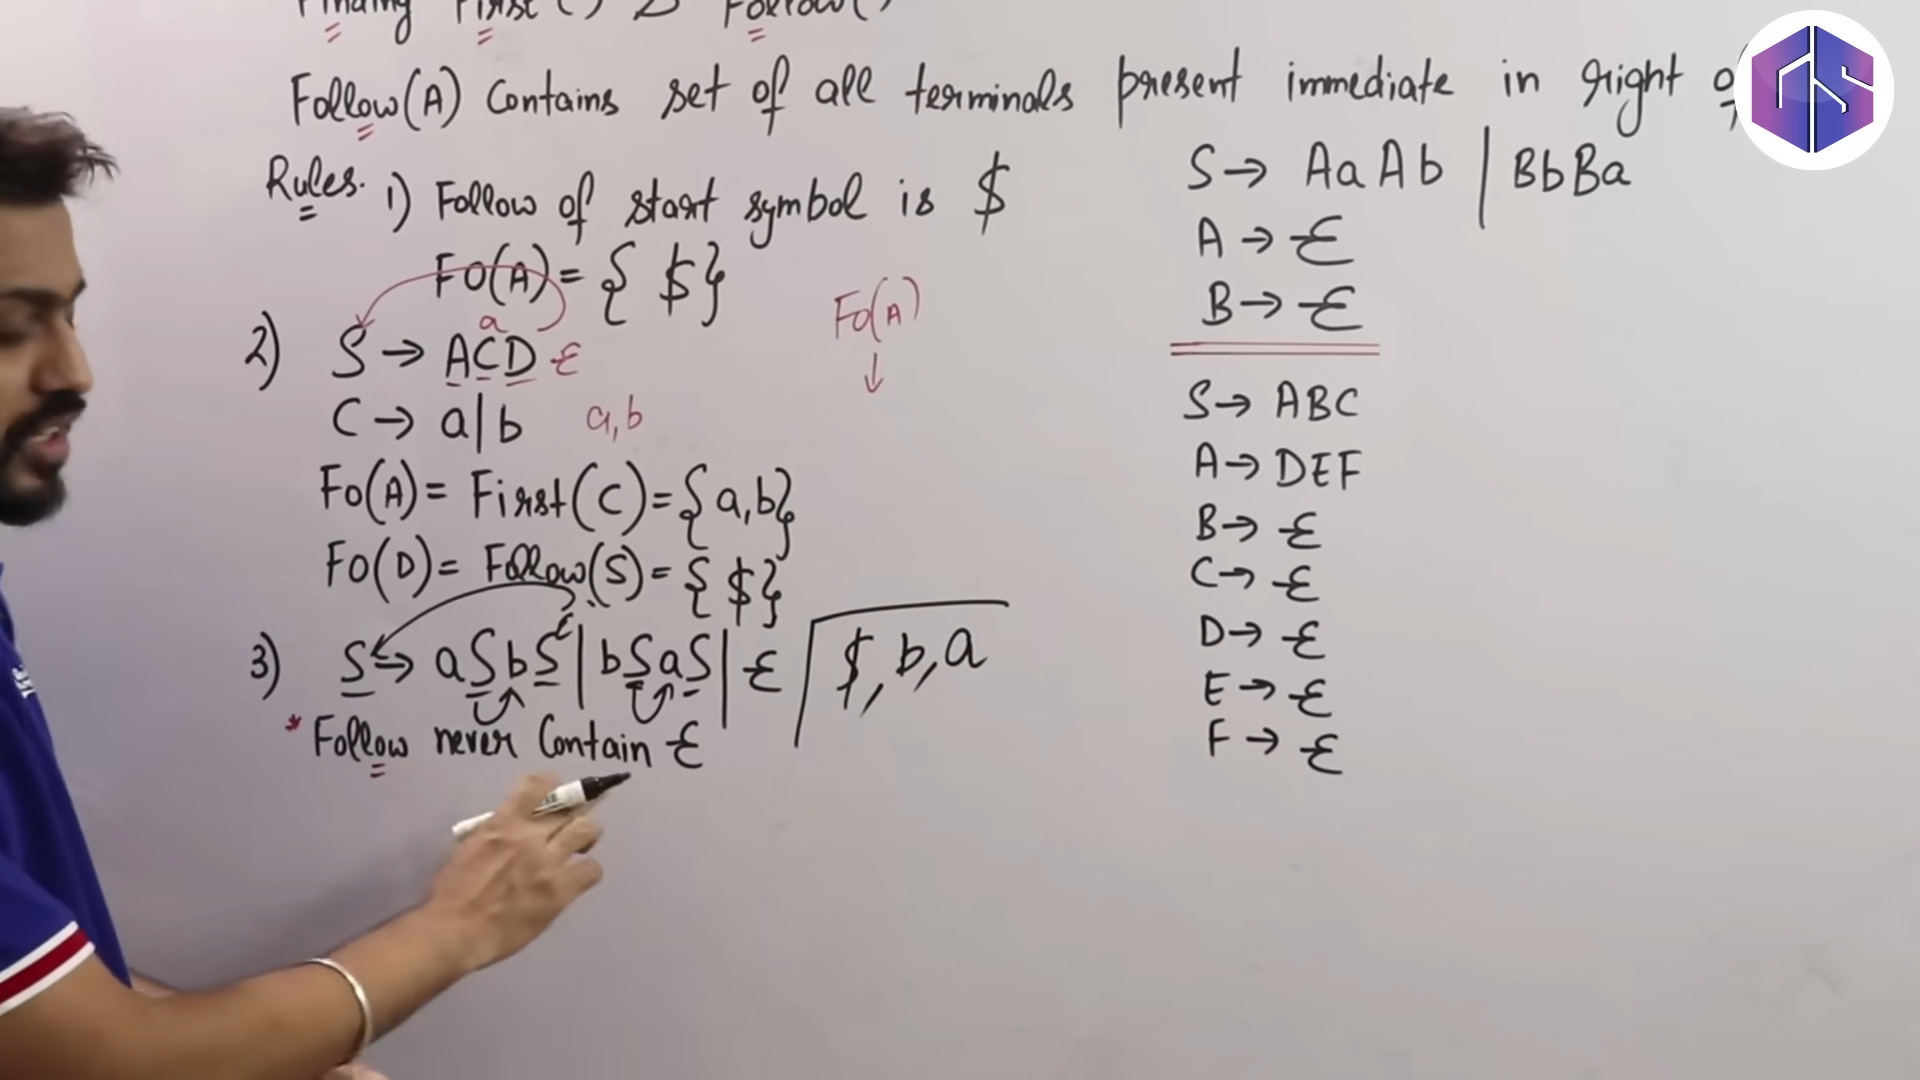 Finding First() & Follow()
Follow(A) Contains set of all terminals present immediate in right
Rules. 1) Follow of start symbol is $
FO(A) = { $}
2) S → ACD ε
a
C → a|b a,b
Fo(A) = First(C) = {a,b}
FO(D) = Follow(S) = { $}
3) S → aSbS | bSaS | ε $, b, a
ε
* Follow never Contain ε
Fo(A)
↓
S → AaAb | BbBa
A → ε
B → ε
S → ABC
A → DEF
B → ε
C → ε
D → ε
E → ε
F → ε